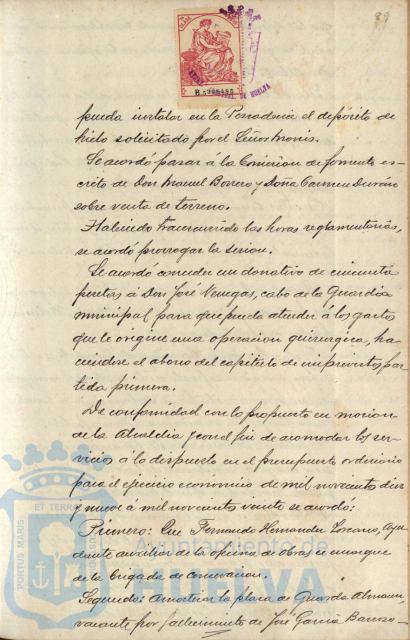 89
B.5986485
pueda instalar en la Pescadería el depósito de
hielo solicitado por el Señor Monis.
Se acordó pasar a la Comision de fomento es-
crito de Don Manuel Borrero y Doña Carmen Durán
sobre venta de terreno.
Habiendo trancurrido las horas reglamentarias,
se acordó prorrogar la sesion.
Se acordó conceder un donativo de cincuenta
pesetas á Don José Venegas, cabo de la Guardia
municipal para que pueda atender á los gastos
que le origine una operacion quirurgica, ha-
ciendose el abono del capítulo de imprevistos par-
tida primera.
De conformidad con lo propuesto en mocion
de la Alcaldia y con el fin de acomodar los ser-
vicios á lo dispuesto en el presupuesto ordinario
para el ejercicio economico de mil novecientos diez
y nueve á mil novecientos veinte se acordó:
Primero: Que Fernando Hernandez Loscano, Ayu-
dante auxiliar de la oficina de obras se encargue
de la brigada de conservacion.
Segundo: Amortizar la plaza de Guarda Almacen,
vacante por fallecimiento de José Garcia Barroso
PORTUS MARIS
ET TERRA
Ayuntamiento de
HUELVA